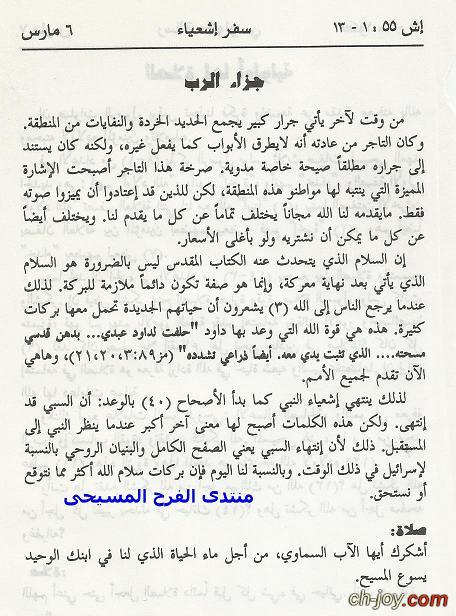 إش ٥٥ : ١ - ١٣ سفر إشعياء ٦ مارس
جزاء الرب
من وقت لآخر يأتي جرار كبير يجمع الحديد الخردة والنفايات من المنطقة.
وكان التاجر من عادته أنه لايطرق الأبواب كما يفعل غيره، ولكنه كان يستند
إلى جراره مطلقاً صيحة خاصة مدوية. صرخة هذا التاجر أصبحت الإشارة
المميزة التي ينتبه لها مواطنو هذه المنطقة، لكن للذين قد إعتادوا أن يميزوا صوته
فقط. مايقدمه لنا الله مجاناً يختلف تماماً عن كل ما يقدم لنا. ويختلف أيضاً
عن كل ما يمكن أن نشتريه ولو بأغلى الأسعار.
إن السلام الذي يتحدث عنه الكتاب المقدس ليس بالضرورة هو السلام
الذي يأتي بعد نهاية معركة، وإنما هو صفة تكون دائماً ملازمة للبركة. لذلك
عندما يرجع الناس إلى الله (٣) يشعرون أن حياتهم الجديدة تحمل معها بركات
كثيرة. هذه هي قوة الله التي وعد بها داود "حلفت لداود عبدي... بدهن قدسي
مسحته.... الذي تثبت يدي معه. أيضاً ذراعي تشدده" (مز٣:٨٩،٢١،٢٠)، وهاهي
الآن تقدم لجميع الأمم.
لذلك ينتهي إشعياء النبي كما بدأ الأصحاح (٤٠) بالوعد: أن السبي قد
إنتهى. ولكن هذه الكلمات أصبح لها معنى آخر أكبر عندما ينظر النبي إلى
المستقبل. ذلك لأن إنتهاء السبي يعني الصفح الكامل والبنيان الروحي بالنسبة
لإسرائيل في ذلك الوقت. وبالنسبة لنا اليوم فإن بركات سلام الله أكثر مما نتوقع
أو نستحق.
منتدى الفرح المسيحى
صلاة:
أشكرك أيها الآب السماوي، من أجل ماء الحياة الذي لنا في ابنك الوحيد
يسوع المسيح.
ch-joy.com